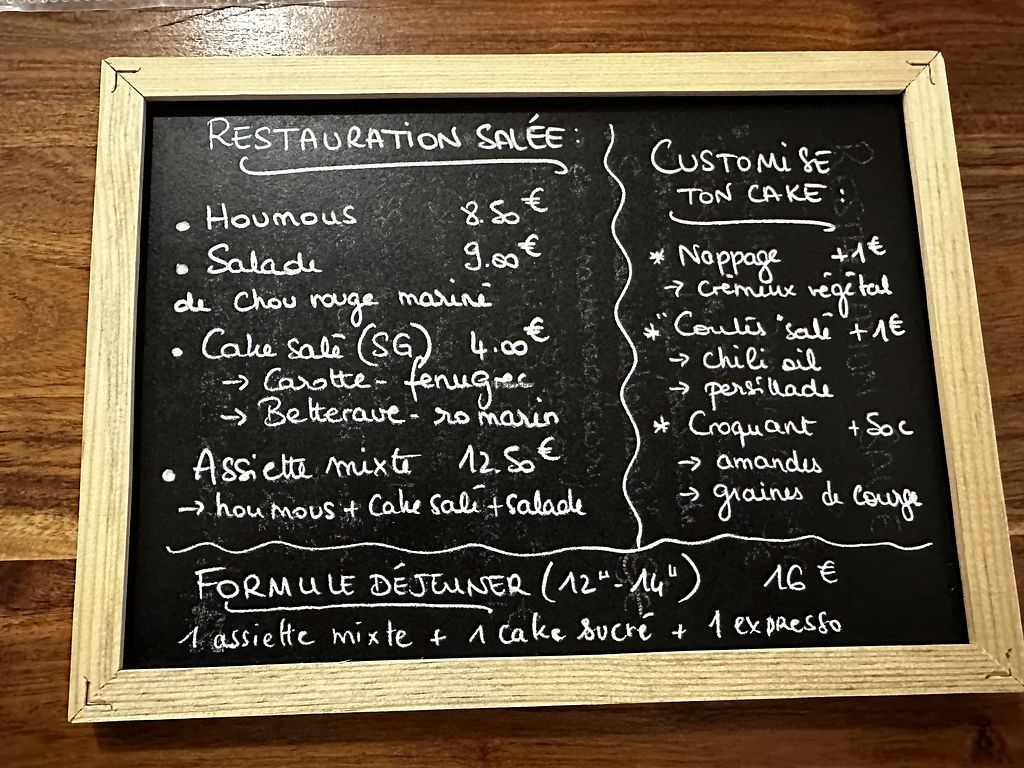 RESTAURATION SALÉE :
• Houmous 8.50€
• Salade 9.00€
de chou rouge mariné
• Cake salé (SG) 4.00€
→ Carotte - fenugrec
→ Betterave - romarin
• Assiette mixte 12.50€
→ houmous + Cake salé + salade
CUSTOMISE
TON CAKE :
* Nappage +1€
→ crèmeux végétal
* "Coulis" salé +1€
→ chili oil
→ persillade
* Croquant +50c
→ amandes
→ graines de courge
FORMULE DÉJEUNER (12" - 14") 16€
1 assiette mixte + 1 cake sucré + 1 expresso